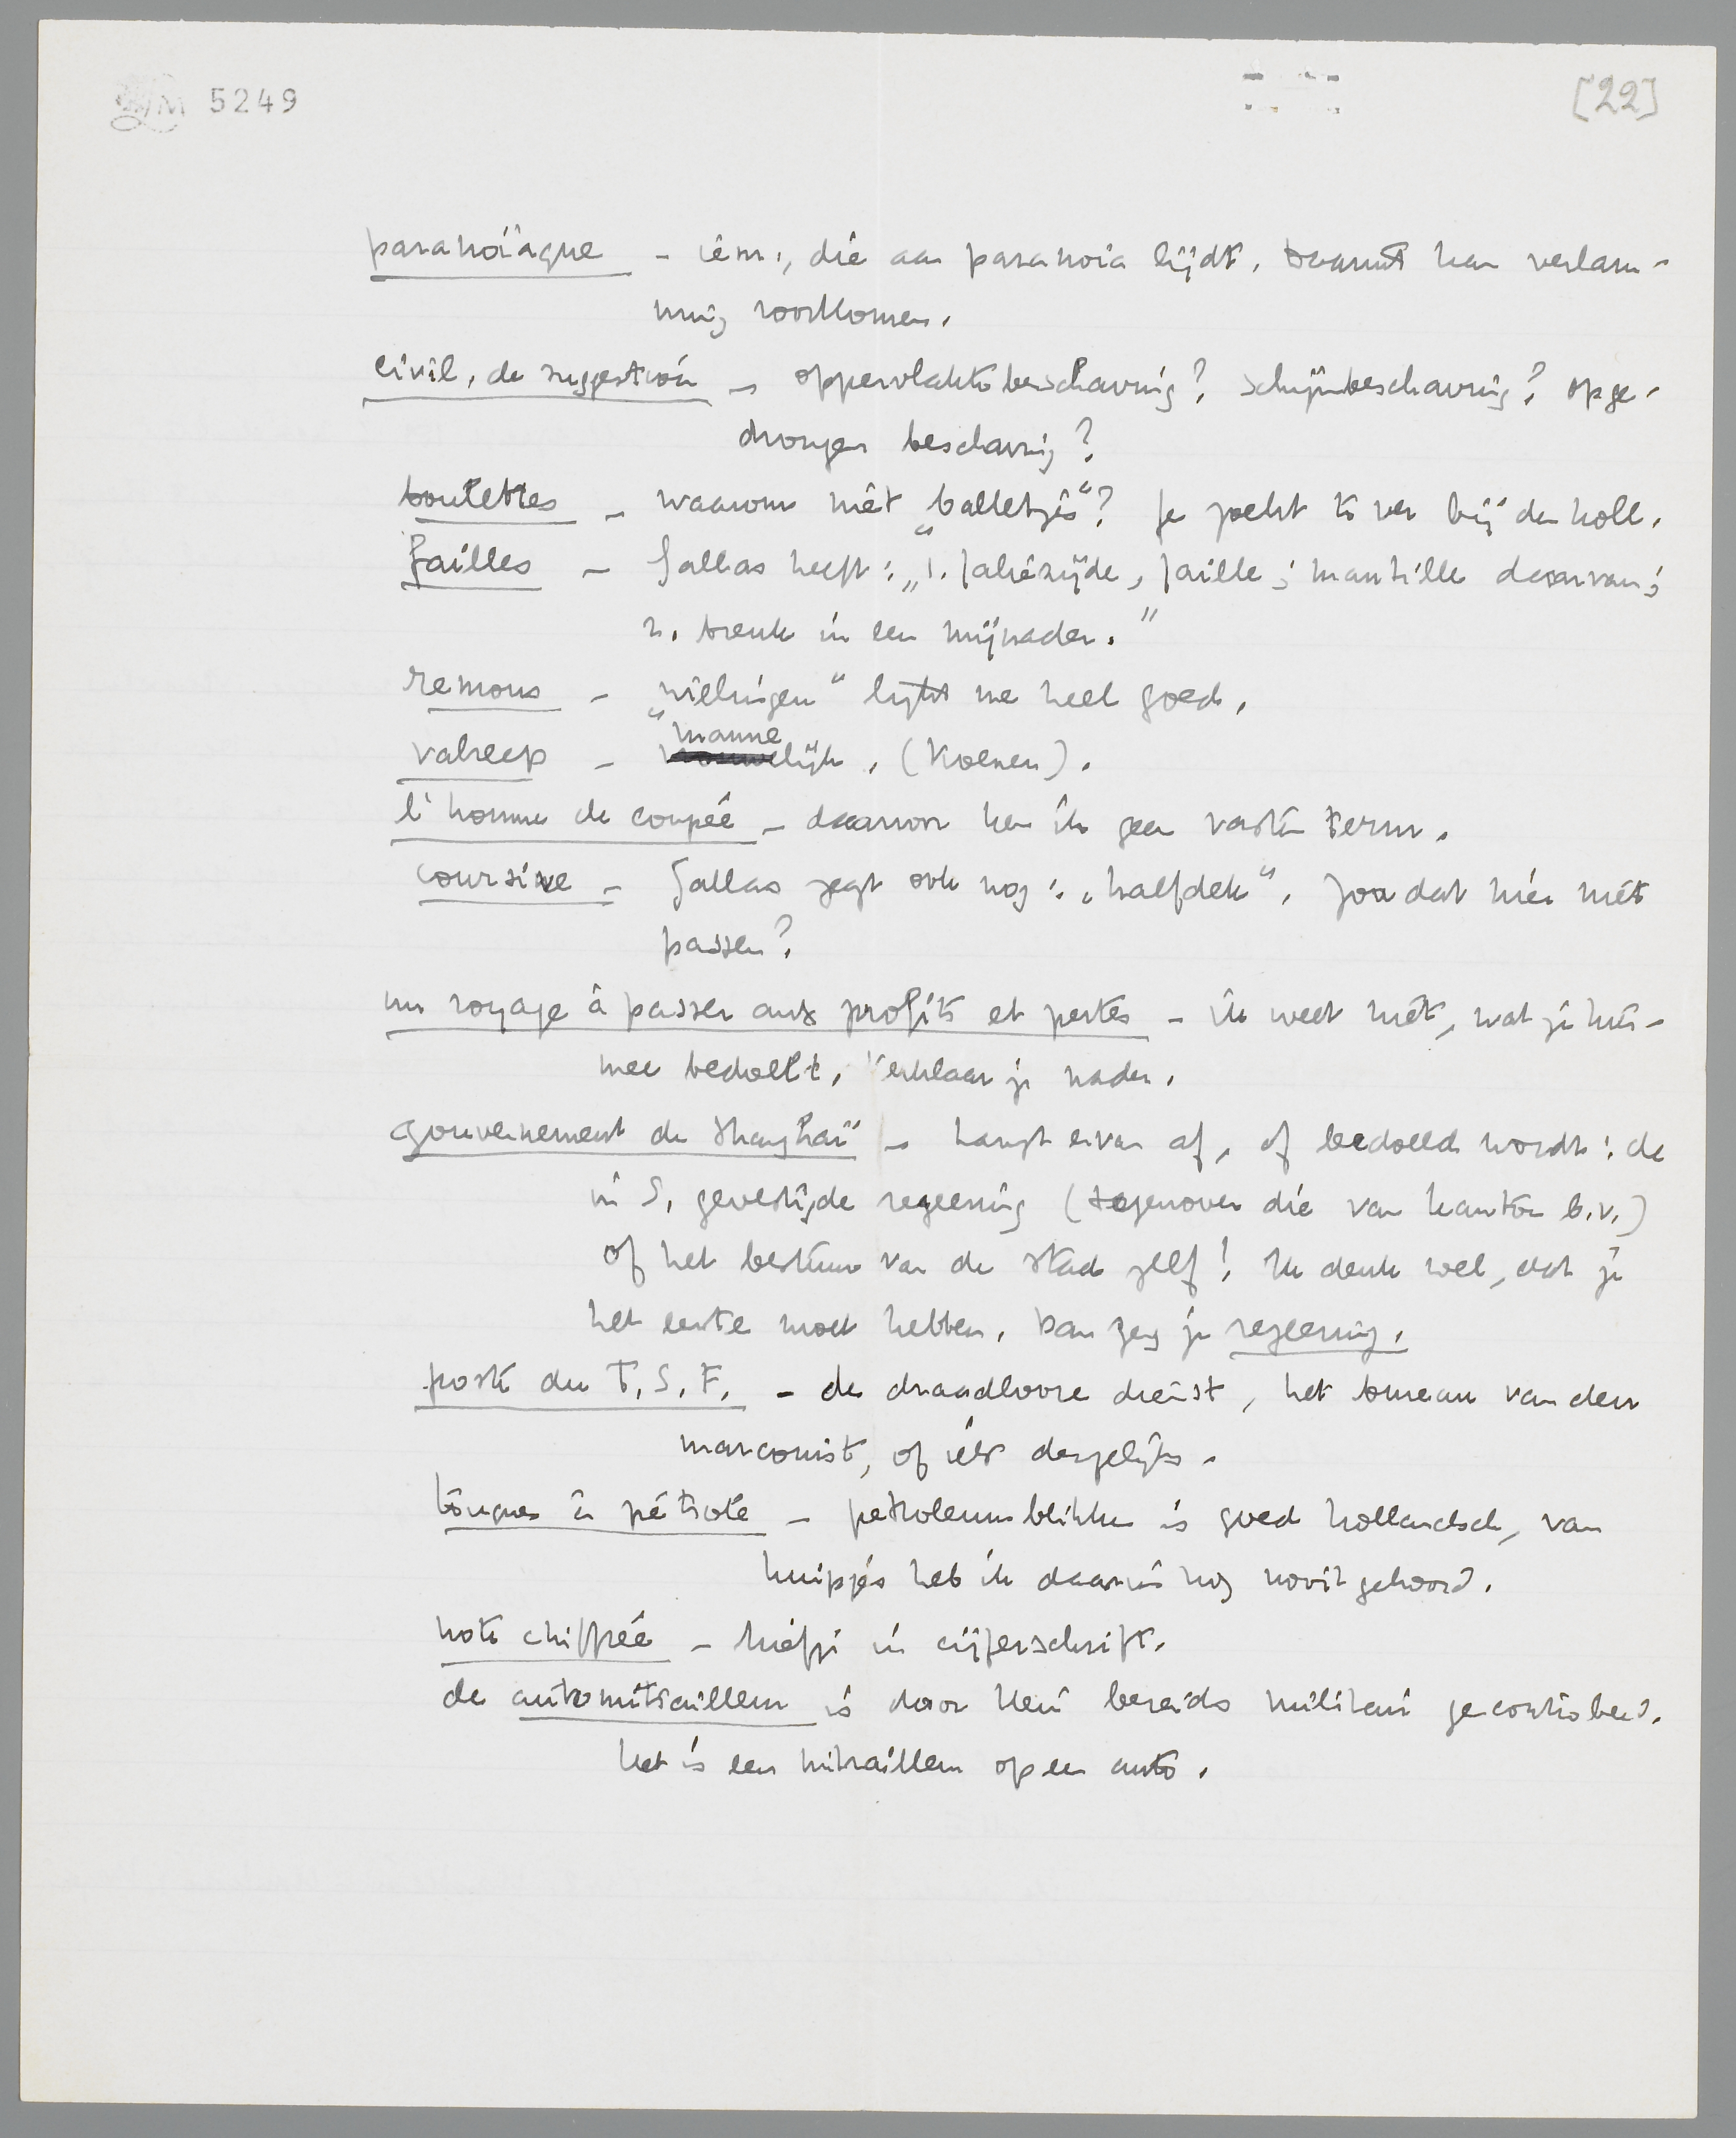 LM 5249
[22]
paranoïaque - iem., die aan paranoia lijdt. Daaruit kan verlam-
ming voortkomen.
civil. de suggestion - oppervlaktebeschaving? schijnbeschaving? opge-
drongen beschaving?
boulettes - waarom niet „balletjes“? Je zoekt te ver bij den holl.
failles - Gallas heeft: „1. faliezijde, faille; mantille daarvan;
2. breuk in een mijnader.”
remous - „wielingen“ lijkt me heel goed.
valreep - mannelijk. (Koenen).
l'homme de coupée - daarvoor ken ik geen vaste term.
coursive - Gallas zegt ook nog: „halfdek“. Zou dat hier niet
passen?
un voyage à passer aux profits et pertes - ik weet niet, wat je hier-
mee bedoelt. Verklaar je nader.
gouvernement de Shanghaï - hangt ervan af, of bedoeld wordt: de
in S. gevestigde regeering (tegenover die van Kanton b.v.)
of het bestuur van de stad zelf! Ik denk wel, dat je
het eerste moet hebben. Dan zeg je regeering.
poste de T.S.F. - de draadlooze dienst, het bureau van den
marconist, of iets dergelijks.
touques à pétrole - petroleumblikken is goed hollandsch, van
kuipjes heb ik daarin nog nooit gehoord.
note chiffrée - briefje in cijferschrift.
de automitrailleur is door Hein bereids militair gecontroleerd.
het is een mitrailleur op een auto.